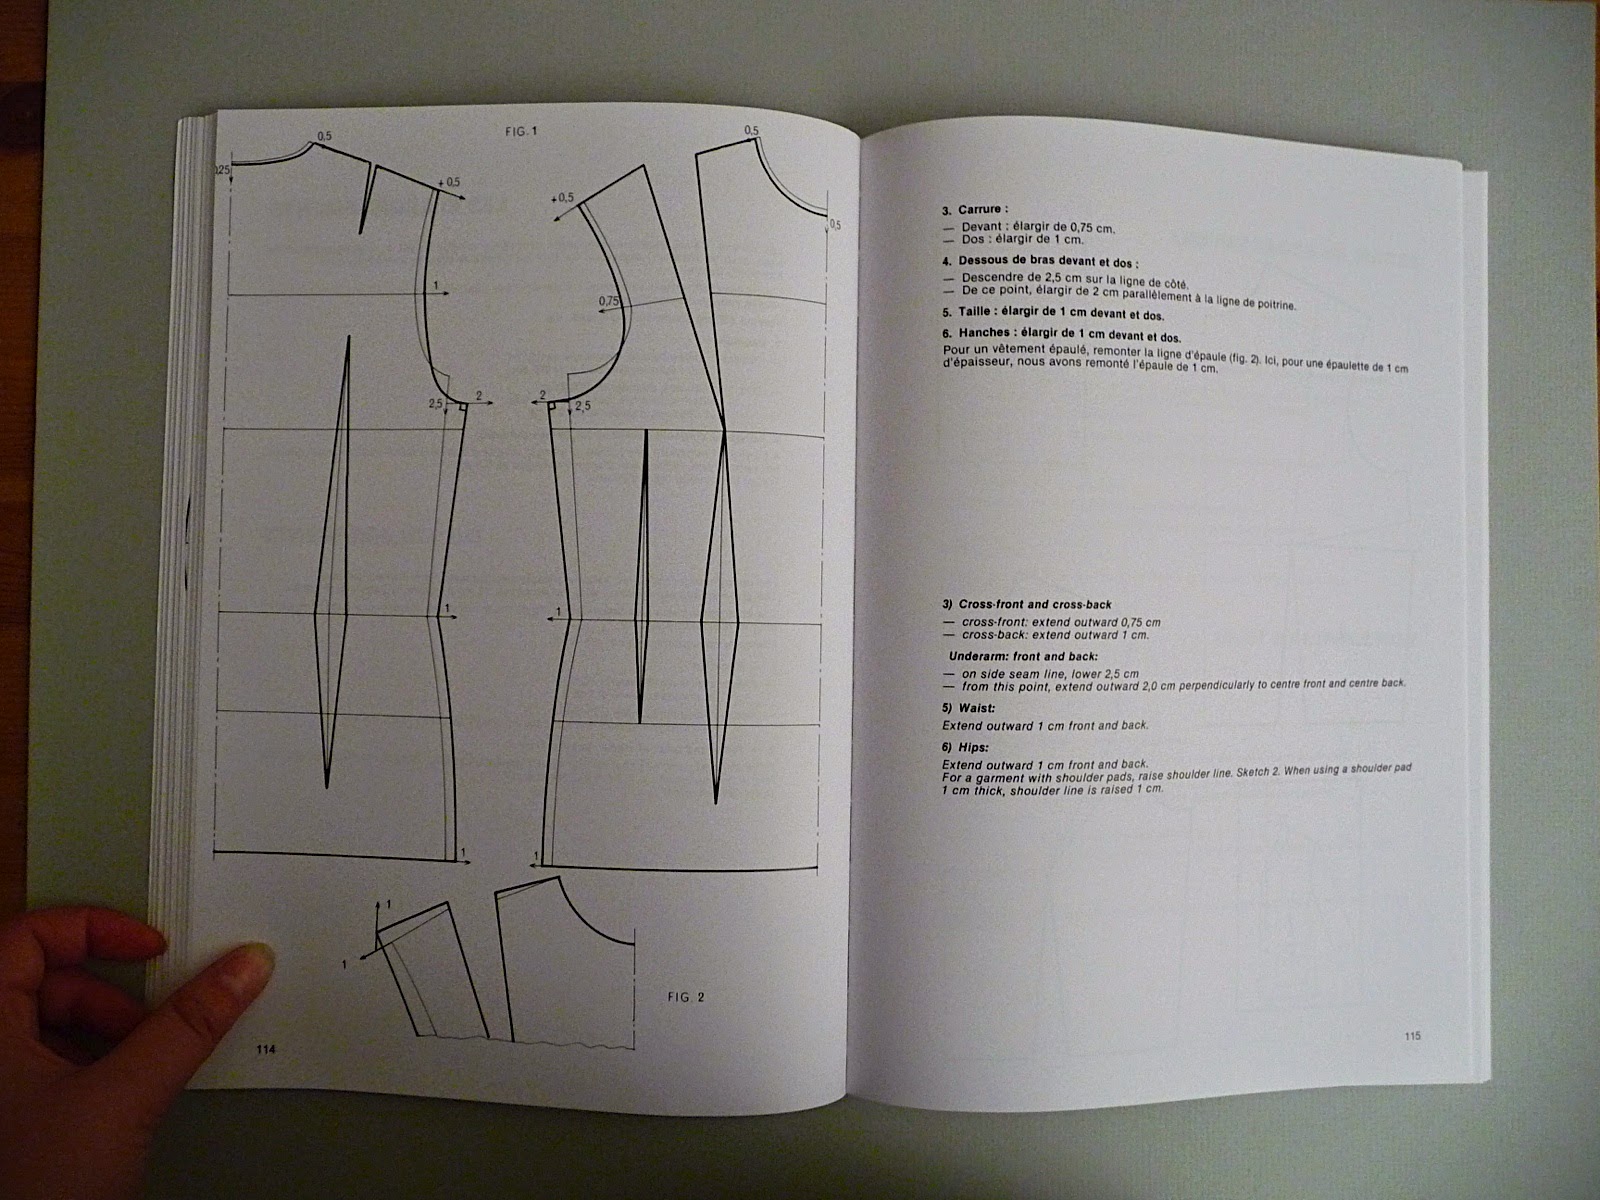 FIG. 1
0,5
0,5
0,25
+ 0,5
+0,5
0,5
1
0,75
2,5
2
2
2,5
1
1
1
1
1
1
FIG. 2
114
3. Carrure :
— Devant : élargir de 0,75 cm.
— Dos : élargir de 1 cm.
4. Dessous de bras devant et dos :
— Descendre de 2,5 cm sur la ligne de côté.
— De ce point, élargir de 2 cm parallèlement à la ligne de poitrine.
5. Taille : élargir de 1 cm devant et dos.
6. Hanches : élargir de 1 cm devant et dos.
Pour un vêtement épaulé, remonter la ligne d'épaule (fig. 2). Ici, pour une épaulette de 1 cm
d'épaisseur, nous avons remonté l'épaule de 1 cm.
3) Cross-front and cross-back
— cross-front: extend outward 0,75 cm
— cross-back: extend outward 1 cm.
Underarm: front and back:
— on side seam line, lower 2,5 cm
— from this point, extend outward 2,0 cm perpendicularly to centre front and centre back.
5) Waist:
Extend outward 1 cm front and back.
6) Hips:
Extend outward 1 cm front and back.
For a garment with shoulder pads, raise shoulder line. Sketch 2. When using a shoulder pad
1 cm thick, shoulder line is raised 1 cm.
115